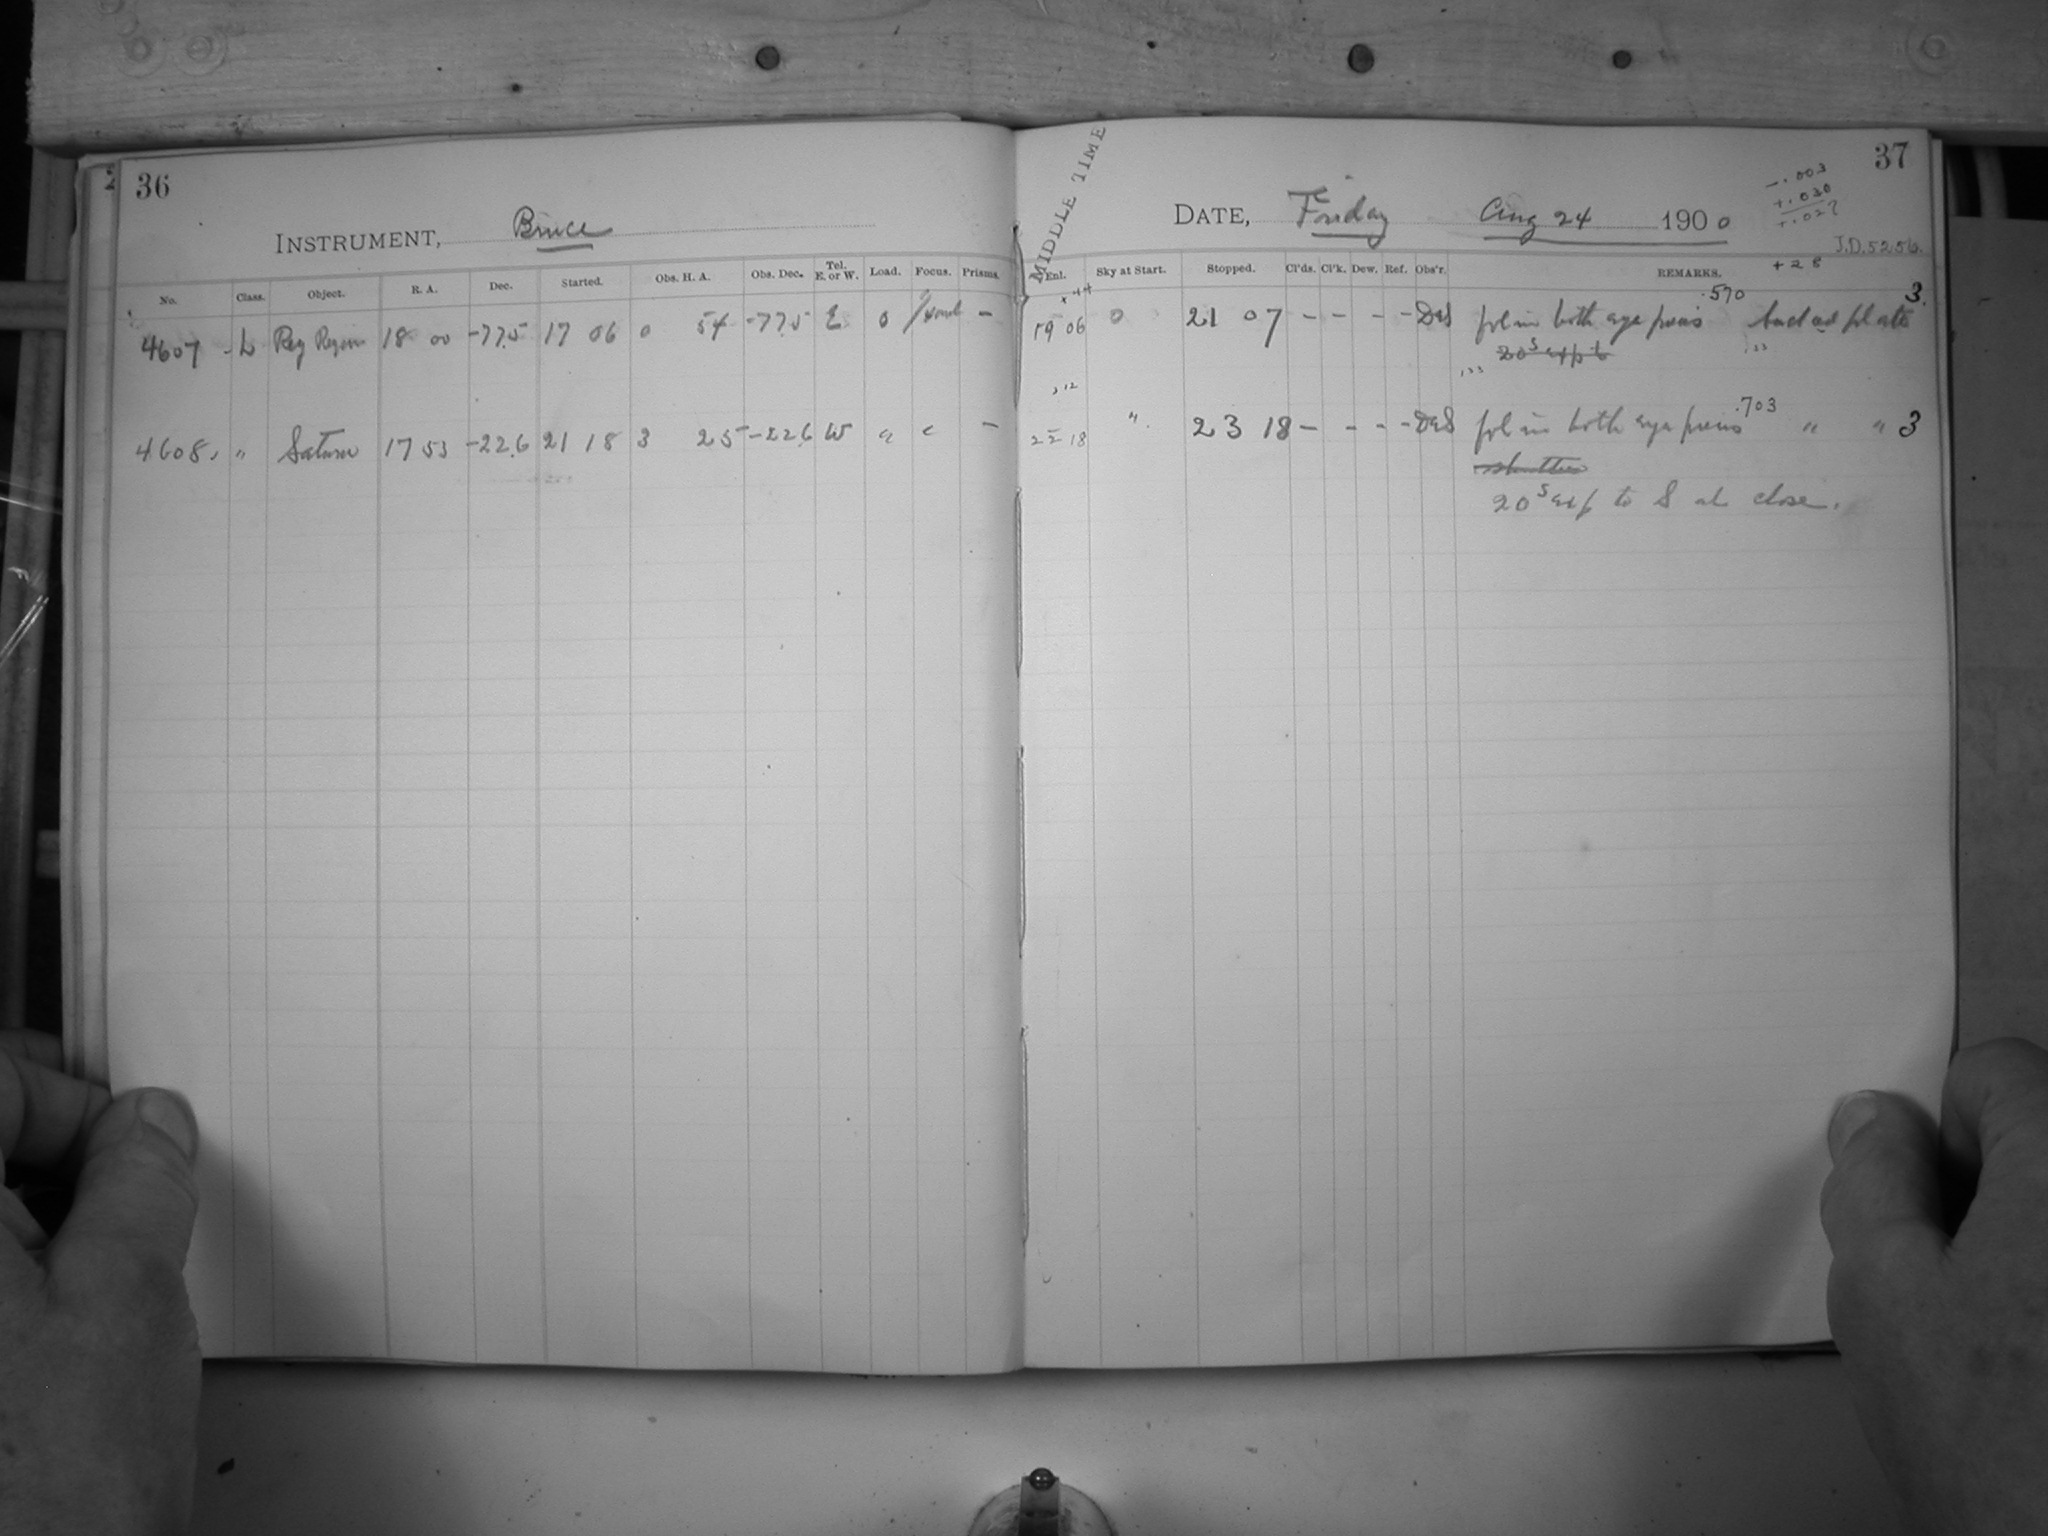 36
INSTRUMENT, Bruce
No. Class. Object. R. A. Dec. Started. Obs. H. A. Obs. Dec. Tel. E. or W. Load. Focus. Prisms.
4607 L Reg Region 18 00 -77.5 17 06 0 54 -77.5 E 0 -
4608 " Saturn 17 53 -22.6 21 18 3 25 -22.6 W -
37
-.003
+.030
+.027
DATE, Friday Aug 24 1900
J.D. 5256.
+28
MIDDLE TIME
Enl. Sky at Start. Stopped. Cl'ds. Cl'k. Dew. Ref. Obs'r. REMARKS.
+44 .570 3.
19 06 0 21 07 - - - - DeS fol in both eye pieces backed plate
20s exp to
.12 .703
22 18 " 23 18 - - - - DeS fol in both eye pieces " " 3
shutter
20s exp to S at close.